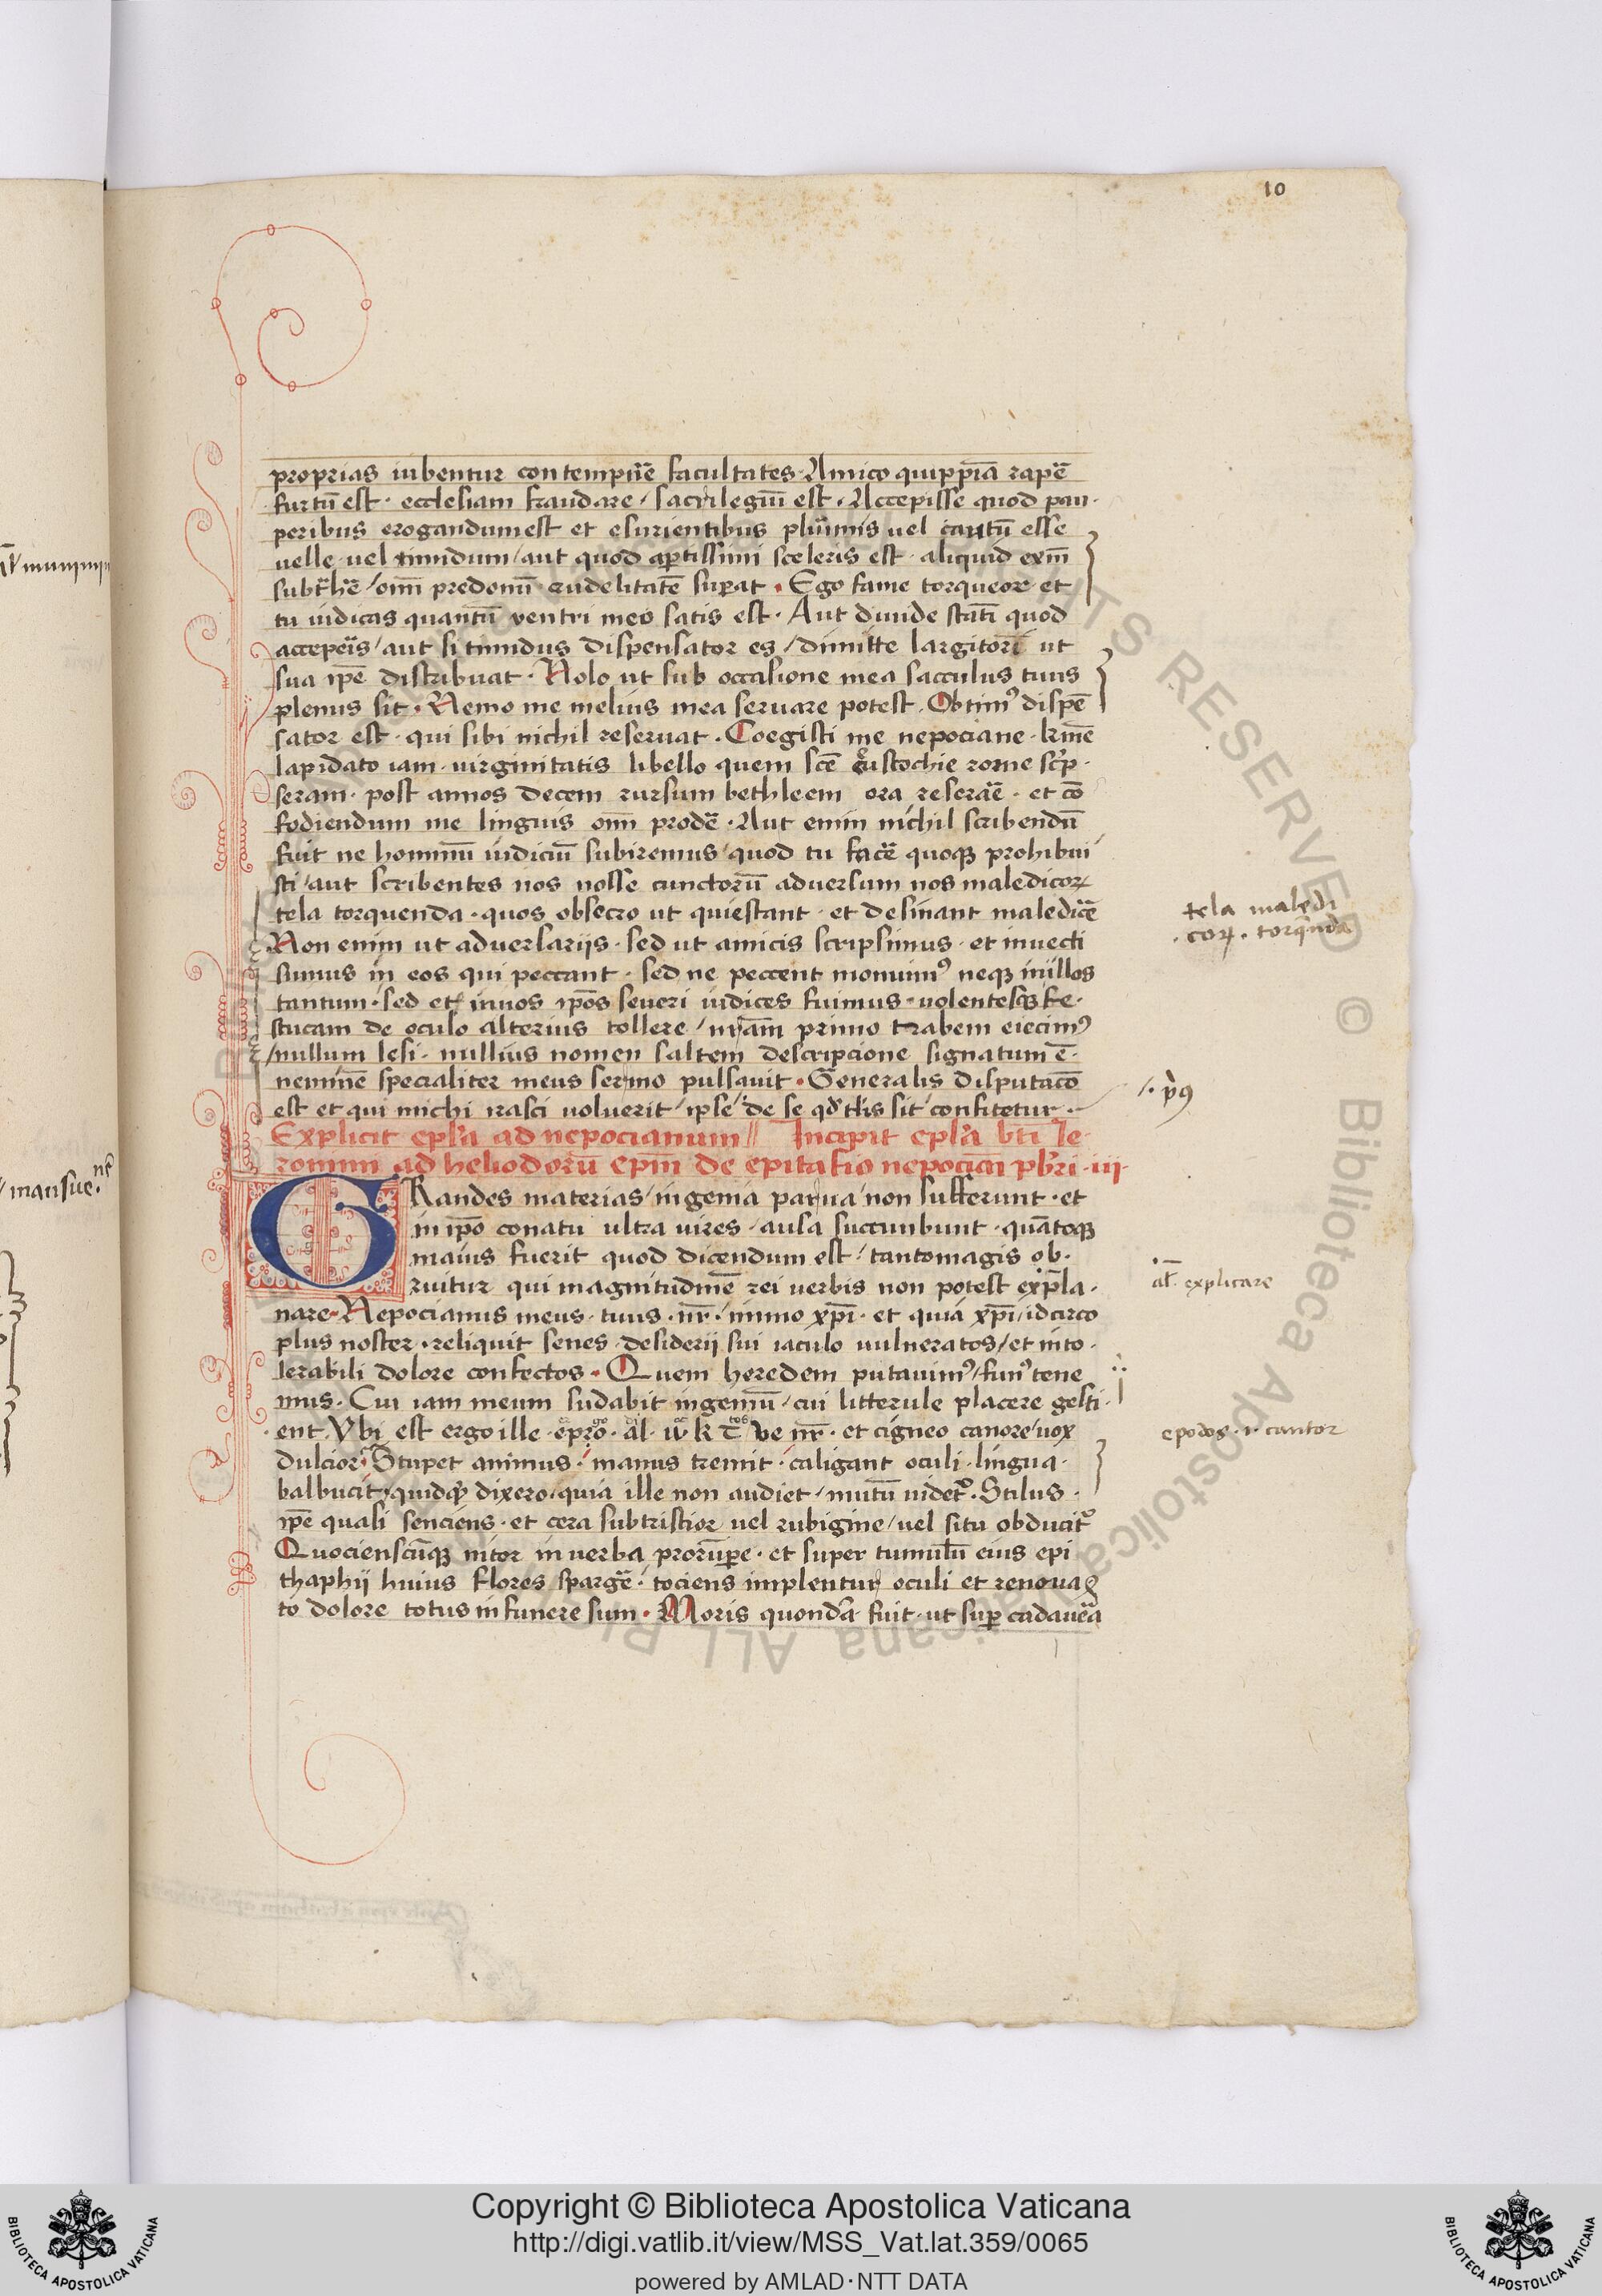 10
proprias iubentur contempnẽ facultates · Amico quippiã rapẽ
furtũ est · ecclesiam fraudare / sacrilegiũ est · Accepisse quod pau-
peribus erogandum est et esurientibus plurimis uel cautũ esse
uelle uel timidum / aut quod apertissimi sceleris est · aliquid exin̄
subtͬhẽ / om̄ predonũ crudelitatẽ supat · Ego fame torqueor et
tu iudicas quantũ ventri meo satis est · Aut diuide statĩ quod
acceperis / aut si timidus dispensator es / dimitte largitorĩ ut
sua ip̄e distribuat · Nolo ut sub occasione mea sacculus tuus
plenus sit · Nemo me melius mea seruare potest · Obtim⁹ dispẽ
sator est · qui sibi nichil reseruat · Coegisti me nepociane
lapidato iam · virginitatis libello quem sc̄e eustochie rome sc̓p-
seram · post annos decem rursum bethleem ora reserãe · et cõ
fodiendum me linguis om̄ prodẽ · Aut enim nichil scribendũ
fuit ne hominũ iudiciũ subiremus / quod tu facẽ quoqꝫ prohibui
sti / aut scribentes nos nosse cunctorũ aduersum nos maledicoꝝ
tela torquenda · quos obsecro ut quiescant · et desinant maledicẽ
Non enim ut aduersarijs · sed ut amicis scripsimus · et inuecti
sumus in eos qui peccant · sed ne peccent monuim⁹ neqꝫ in illos
tantum · sed et in nos ip̄os seueri iudices fuimus · uolentesqꝫ fe-
stucam de oculo alterius tollere / nr̄am primo trabem eiecim⁹
/ nullum lesi · nullius nomen saltem descripcione signatum ẽ ·
neminẽ specialiter meus sermo pulsauit · Generalis disputac̄o
est et qui michi irasci uoluerit / ipse de se qđ tl̄is sit confitetur ·
Explicit epl̄a ad nepocianum // Incipit epl̄a bt̄i Ie-
ronimi ad heliodorũ epm̄ de epitafio nepociãni pb̄ri · iij ·
GRandes materias / ingenia parua non sufferunt · et
in ip̄o conatu ultra uires · ausa succumbunt · quãtoqꝫ
maius fuerit quod dicendum est / tantomagis ob-
ruitur qui magnitudinẽ rei uerbis non potest expla-
nare · Nepocianus meus · tuus · nr̄ · immo xp̄i · et quia xp̄i / idcirco
plus noster · reliquit senes · desiderij sui iaculo uulneratos / et into-
lerabili dolore confectos · Quem heredem putauim⁹ / fun⁹ tene
mus · Cui iam meum sudabit ingeniũ / cui litterule placere gesti-
ent · Vbi est ergo ille et cigneo canore / uox
dulcior · Stupet animus · manus tremit · caligant oculi · lingua
balbucit / quidqꝫ dixero · quia ille non audiet / mutũ uidetᷣ · Stilus
ip̄e quasi senciens · et cera subtristior uel rubigine / uel situ obducitᷣ
Quocienscũqꝫ nitor in uerba prorũpe · et super tumulũ eius epi
thaphij huius flores spargẽ · tociens implentur oculi et renoua
to dolore totus in funere sum · Moris quondã fuit · ut sup cadauẽa
tela maledi
coꝝ · torquenda
al̄ explicare
epodos · i · cantor
mansue
BIBLIOTECA APOSTOLICA VATICANA
Copyright © Biblioteca Apostolica Vaticana
http://digi.vatlib.it/view/MSS_Vat.lat.359/0065
powered by AMLAD·NTT DATA
BIBLIOTECA APOSTOLICA VATICANA